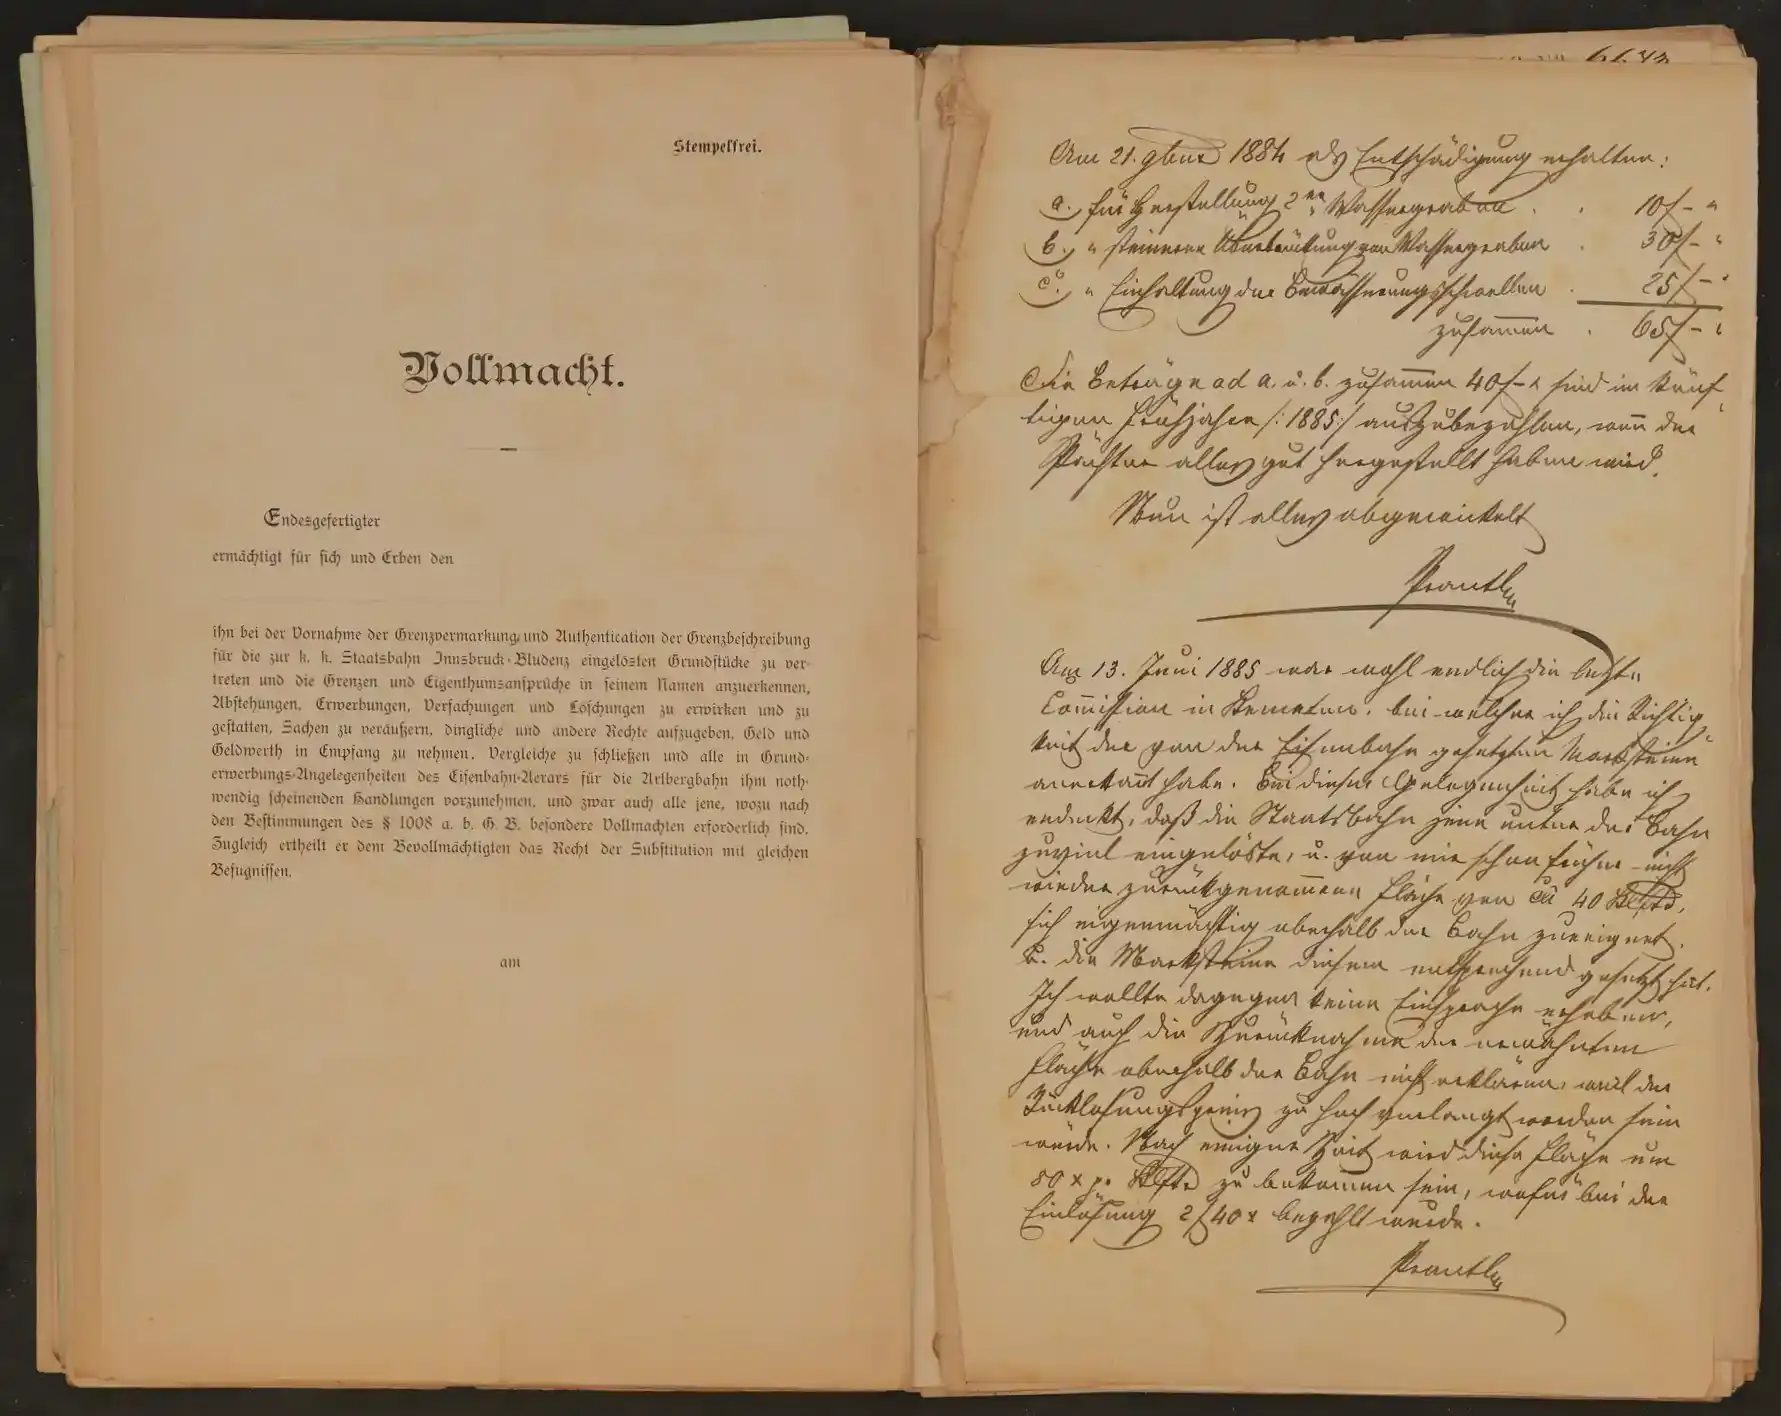 Stempelfrei.
Vollmacht.
Endesgefertigter
ermächtigt für sich und Erben den
ihn bei der Vornahme der Grenzvermarkung und Authentication der Grenzbeschreibung
für die zur k. k. Staatsbahn Innsbruck-Bludenz eingelösten Grundstücke zu ver-
treten und die Grenzen und Eigenthumsansprüche in seinem Namen anzuerkennen,
Abstehungen, Erwerbungen, Verfachungen und Löschungen zu erwirken und zu
gestatten, Sachen zu veräußern, dingliche und andere Rechte aufzugeben, Geld und
Geldwerth in Empfang zu nehmen, Vergleiche zu schließen und alle in Grund-
erwerbungs-Angelegenheiten des Eisenbahn-Aerars für die Arlbergbahn ihm noth-
wendig scheinenden Handlungen vorzunehmen, und zwar auch alle jene, wozu nach
den Bestimmungen des § 1008 a. b. G. B. besondere Vollmachten erforderlich sind.
Zugleich ertheilt er dem Bevollmächtigten das Recht der Substitution mit gleichen
Befugnissen.
am
Am 21. 9bris 1884 als Entschädigung erhalten:
a. für Herstellung 2er Wassergraben . . 10f - "
b. " steinerne Überbrückung von Wassergraben . 30f - "
c. " Einhaltung der Bewässerungsschwellen . 25f - "
zusammen . 65f - "
Die Beträge ad a. u. b. zusammen 40f - x sind im künf-
tigen Frühjahre /:1885:/ auszubezahlen, wenn der
Pächter alles gut hergestellt haben wird.
Nun ist alles abgewickelt
Prantl
Am 13. Juni 1885 war wohl endlich die letzte
Commission in bei welcher ich die Richtig-
keit der von der Eisenbahn gesetzten Marksteine
anerkannt habe. Bei dieser Gelegenheit habe ich
endeckt, daß die Staatsbahn jene unter der Bahn
zuviel eingelöste, u. von mir schon früher nicht
wieder zurückgenommene Fläche von ca 40 Klftr,
sich eigenmächtig oberhalb der Bahn zueignet,
u. die Marksteine diesem entsprechend gesetzt hat.
Ich wollte dagegen keine Einsprache erheben,
und auch die Zurücknahme der erwähnten
Fläche oberhalb der Bahn nicht erklären, weil der
Rücklosungspreis zu hoch verlangt worden sein
würde. Nach einiger Zeit wird diese Fläche um
80 x pr Klftr zu bekommen sein, wofür bei der
Einlösung 2f 40x bezahlt wurde.
Prantl